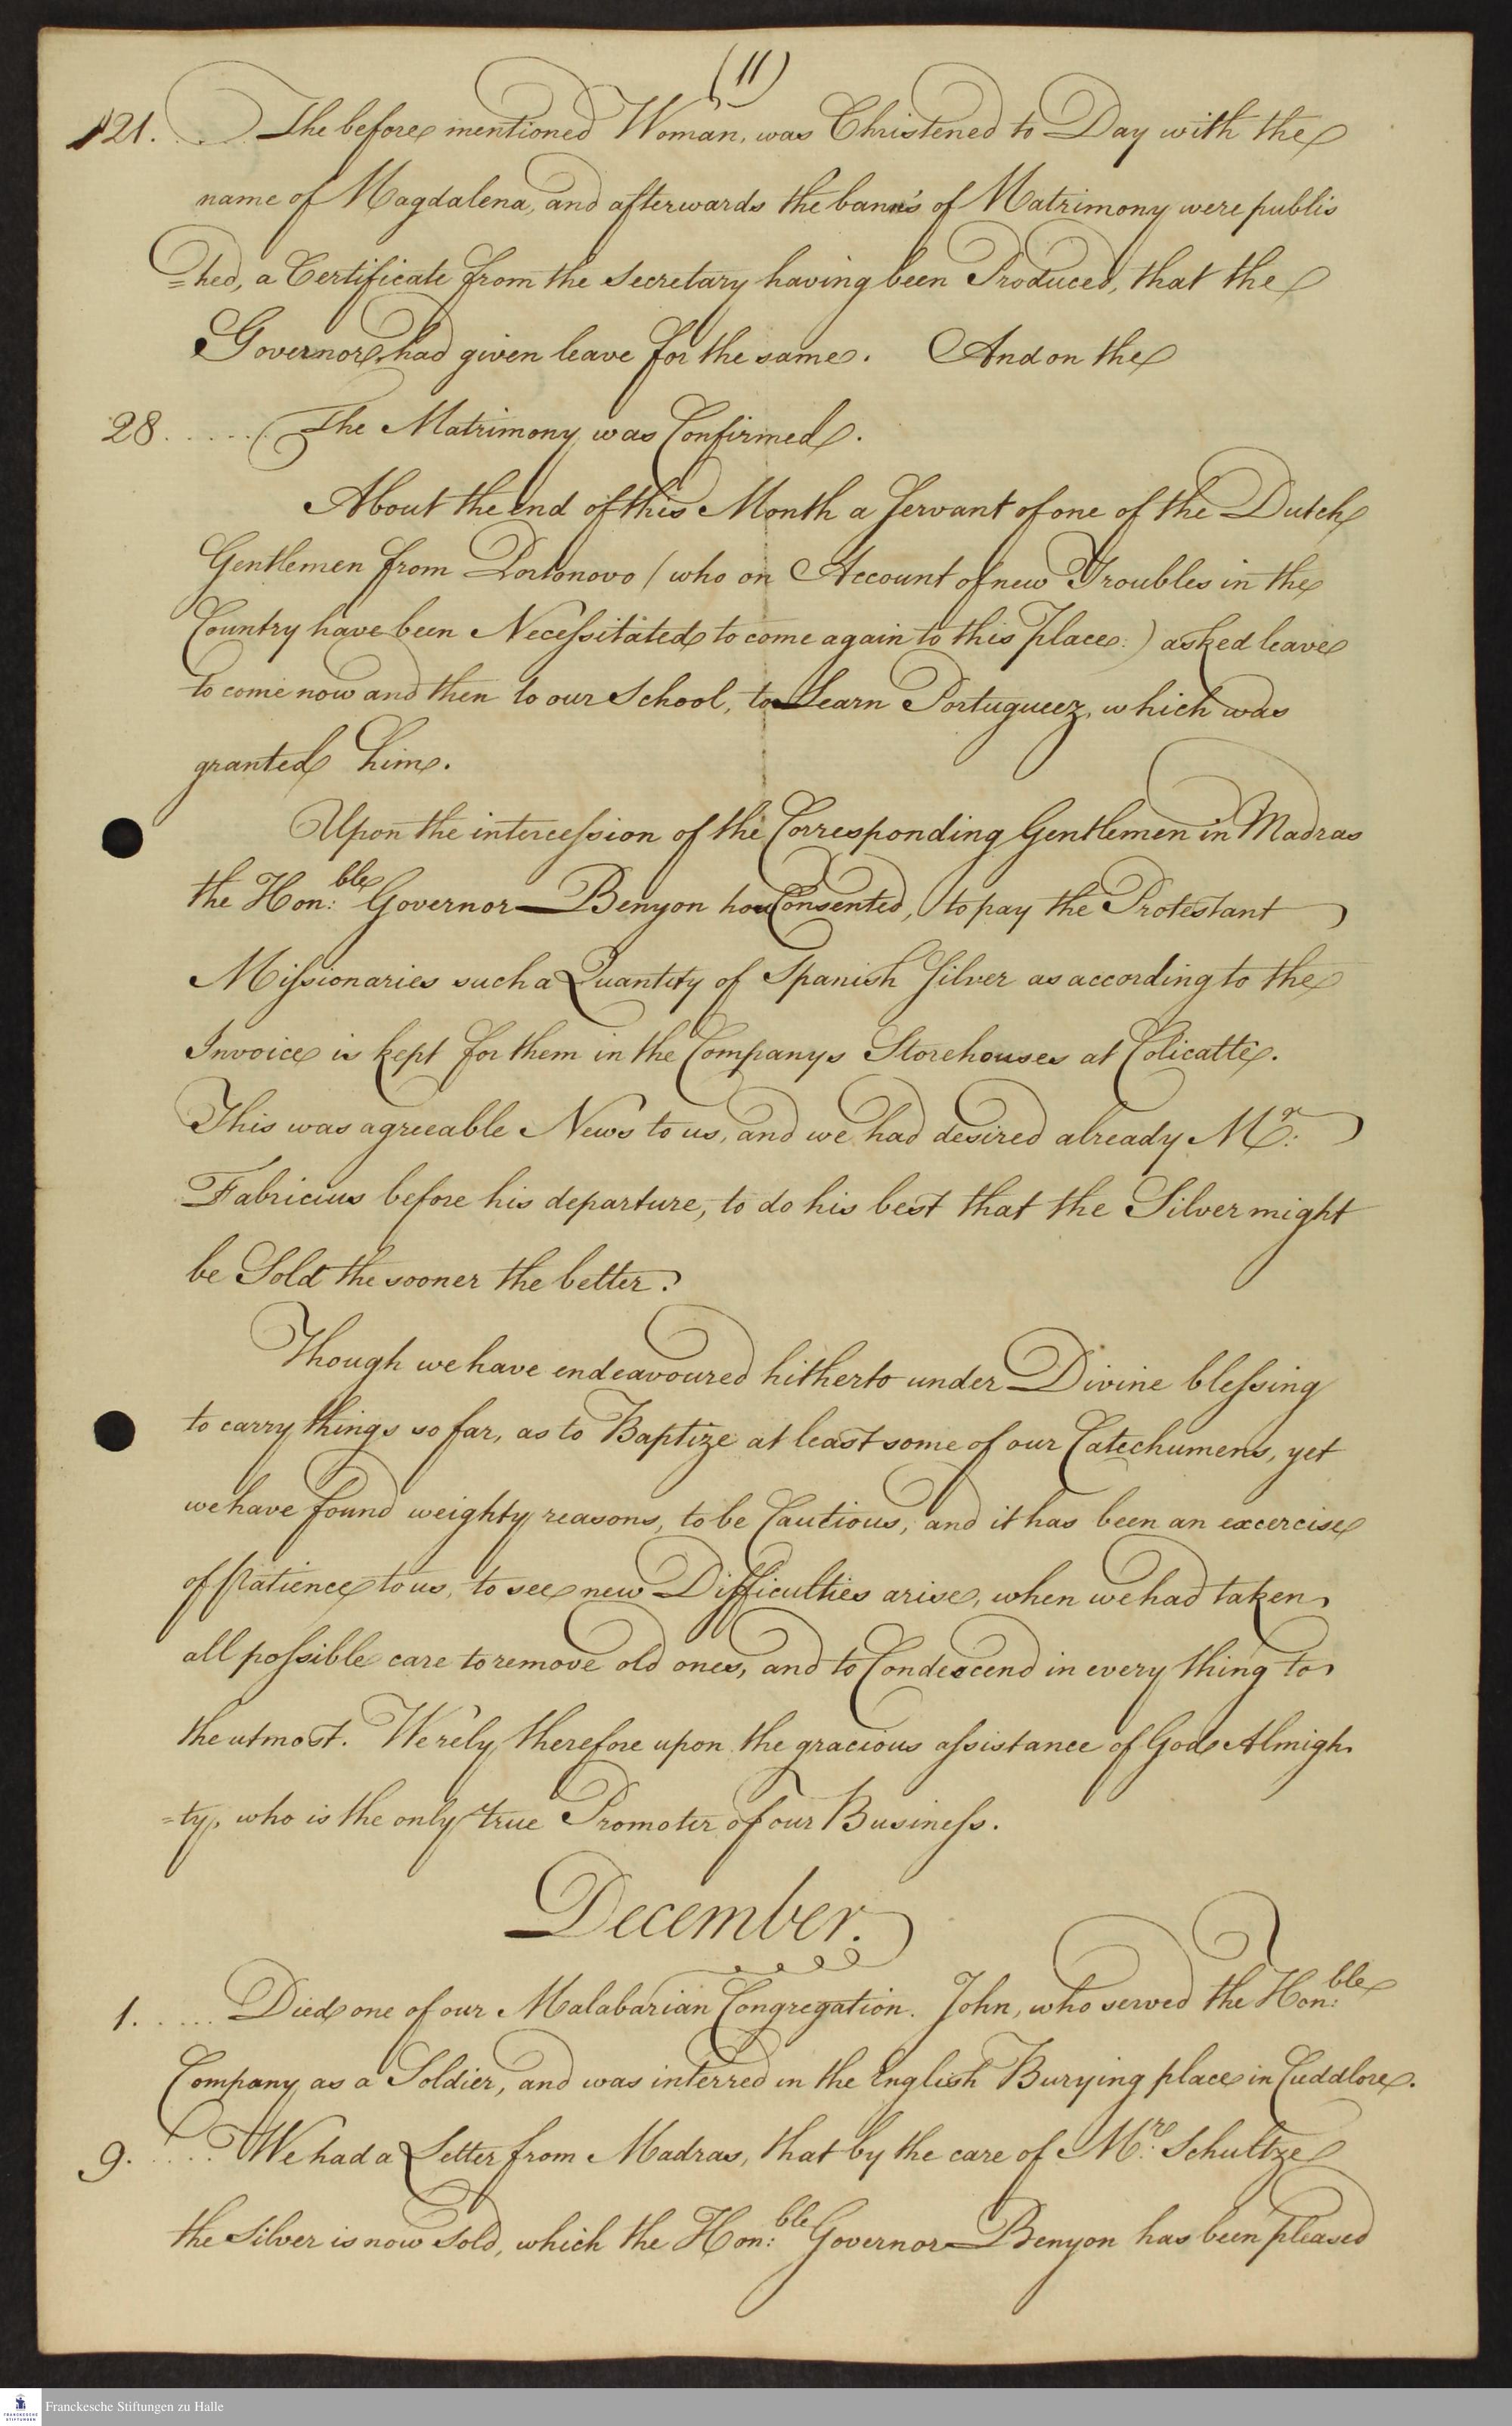 (11)
21. . . The before mentioned Woman, was Christened to Day with the
name of Magdalena, and afterwards the banns of Matrimony were publis
=hed, a Certificate from the Secretary having been Produced, that the
Governor had given leave for the same. And on the
28. . . . . . The Matrimony was Confirmed.
About the End of this Month a Servant of one of the Dutch
Gentlemen from Portonovo / who on Account of new Troubles in the
Country have been Necessitated to come again to this Place:) asked leave
to come now and then to our School, to Learn Portugueez, which was
granted him.
Upon the intercession of the Corresponding Gentlemen in Madras
the Hon:ble Governor Benyon has Consented, to pay the Protestant
Missionaries such a Quantity of Spanish Silver as according to the
Invoice is kept for them in the Companys Storehouses at Colicatte.
This was agreeable News to us, and we had desired already Mr:
Fabricius before his departure, to do his best that the Silver might
be Sold the sooner the better.
Though we have endeavoured hitherto under Divine blessing
to carry things so far, as to Baptize at least some of our Catechumens, yet
we have found weighty reasons, to be Cautious, and it has been an excercise
of Patience to us, to see new Difficulties arise, when we had taken
all possible care to remove old ones, and to Condescend in every thing to
the utmost. We rely therefore upon the gracious assistance of God Almigh
=ty, who is the only true Promoter of our Business.
December.
1. . . . . . Died one of our Malabarian Congregation. John, who served the Hon:ble
Company as a Soldier, and was interred in the English Burying place in Cuddlore.
9. . . . . . We had a Letter from Madras, that by the care of Mr: Schultze
the Silver is now Sold, which the Hon:ble Governor Benyon has been pleased
Franckesche Stiftungen zu Halle